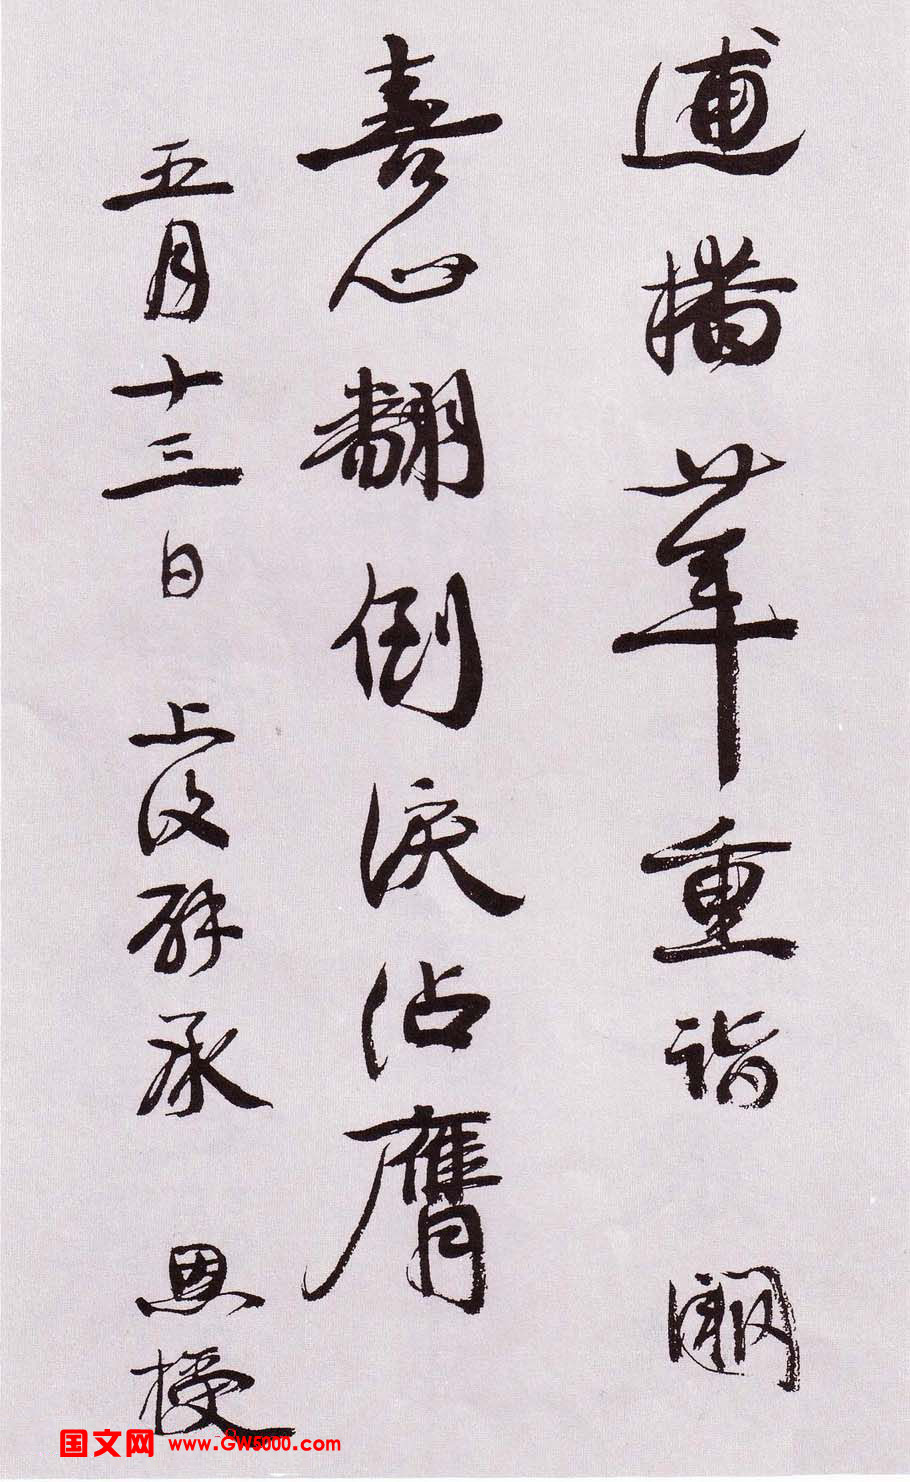 逋播廿年重詣闕
喜心翻倒淚沾膺
五月十三日上復辟承恩授
国文网 www.GW5000.com